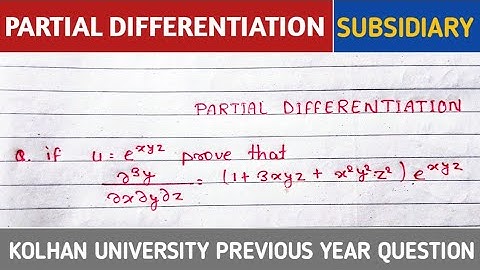 PARTIAL DIFFERENTIATION SUBSIDIARY
PARTIAL DIFFERENTIATION
Q. if u = e^xyz prove that
∂³y/∂x∂y∂z = (1+3xyz + x²y²z²) e^xyz
KOLHAN UNIVERSITY PREVIOUS YEAR QUESTION